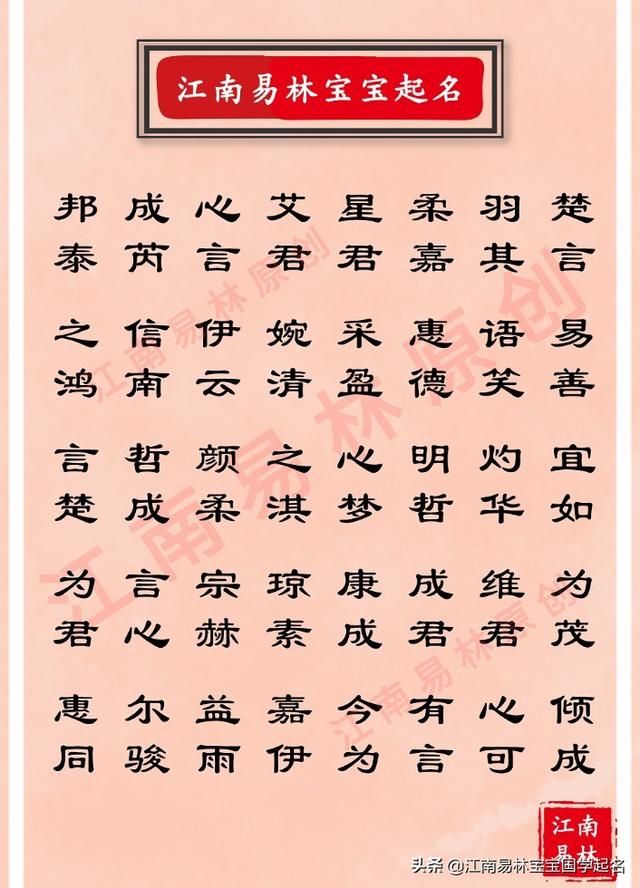 江南易林宝宝起名
邦 成 心 艾 星 柔 羽 楚
泰 芮 言 君 君 嘉 其 言
之 信 伊 婉 采 惠 语 易
鸿 南 云 清 盈 德 笑 善
言 哲 颜 之 心 明 灼 宜
楚 成 柔 淇 梦 哲 华 如
为 言 宗 琼 康 成 维 为
君 心 赫 素 成 君 君 茂
惠 尔 益 嘉 今 有 心 倾
同 骏 雨 伊 为 言 可 成
江南易林原创
江南易林原创
江南易林原创
江南
易林
头条 @江南易林宝宝国学起名